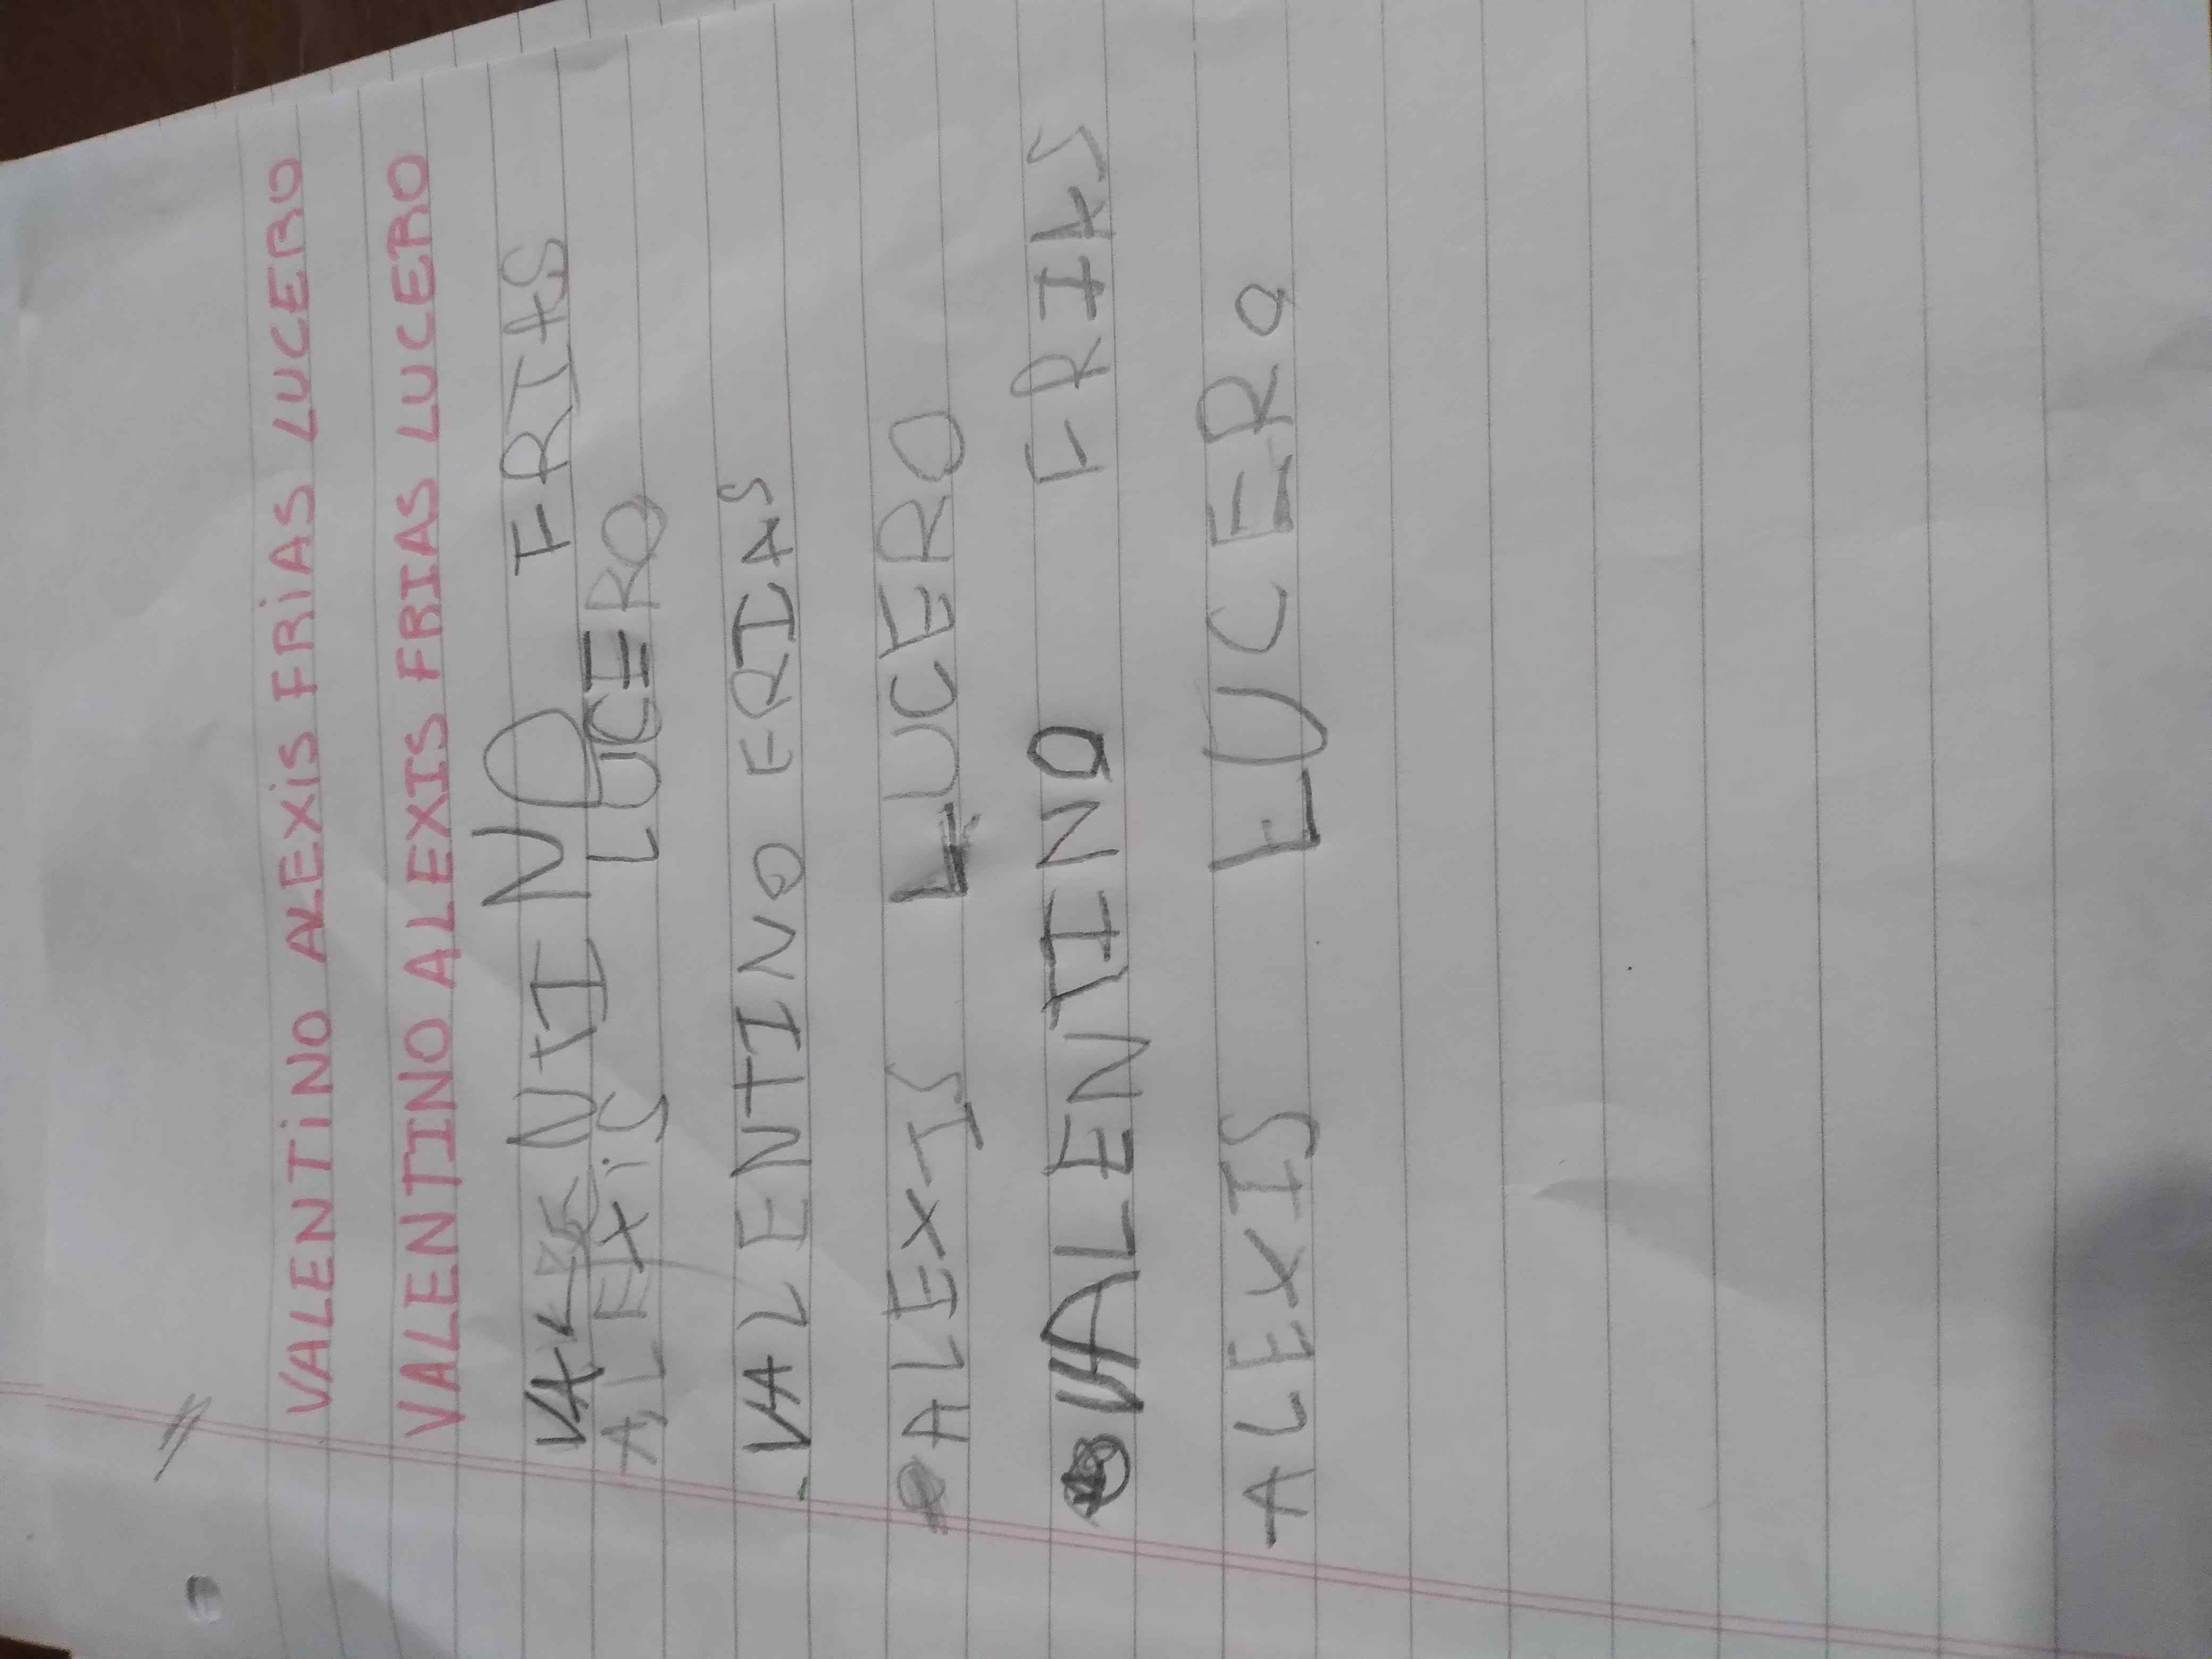 VALENTiNO ALEXiS FRiAS LUCERO
VALENTINO ALEXIS FRIAS LUCERO
VALENTINO FRIAS
ALEXiS LUCERO
VALENTINO FRIAS
ALEXIS LUCERO
VALENTINO FRIAS
ALEXIS LUCERO